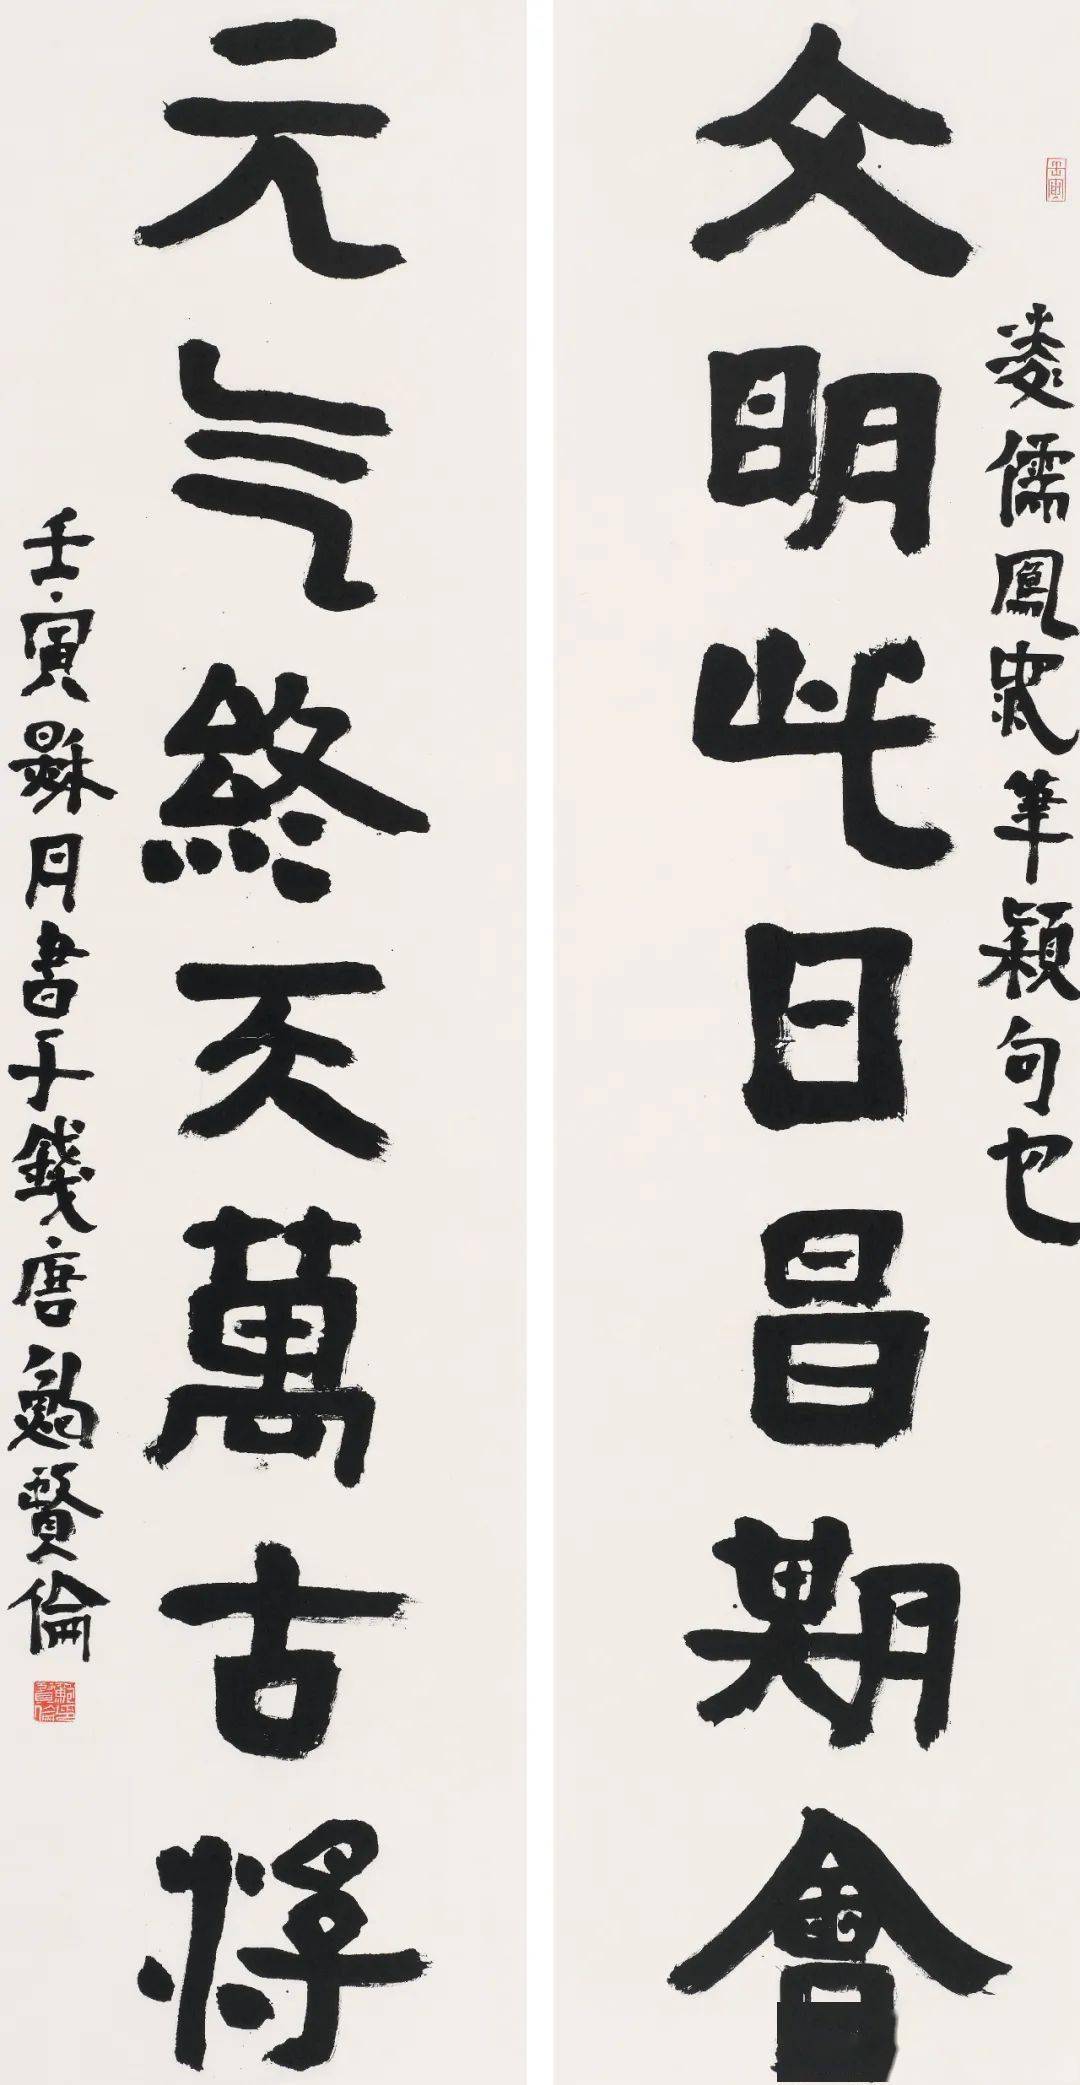 文明此日昌期會
凌儒鳳筆穎句也
元气終天萬古将
壬寅月書于錢唐鮑賢倫